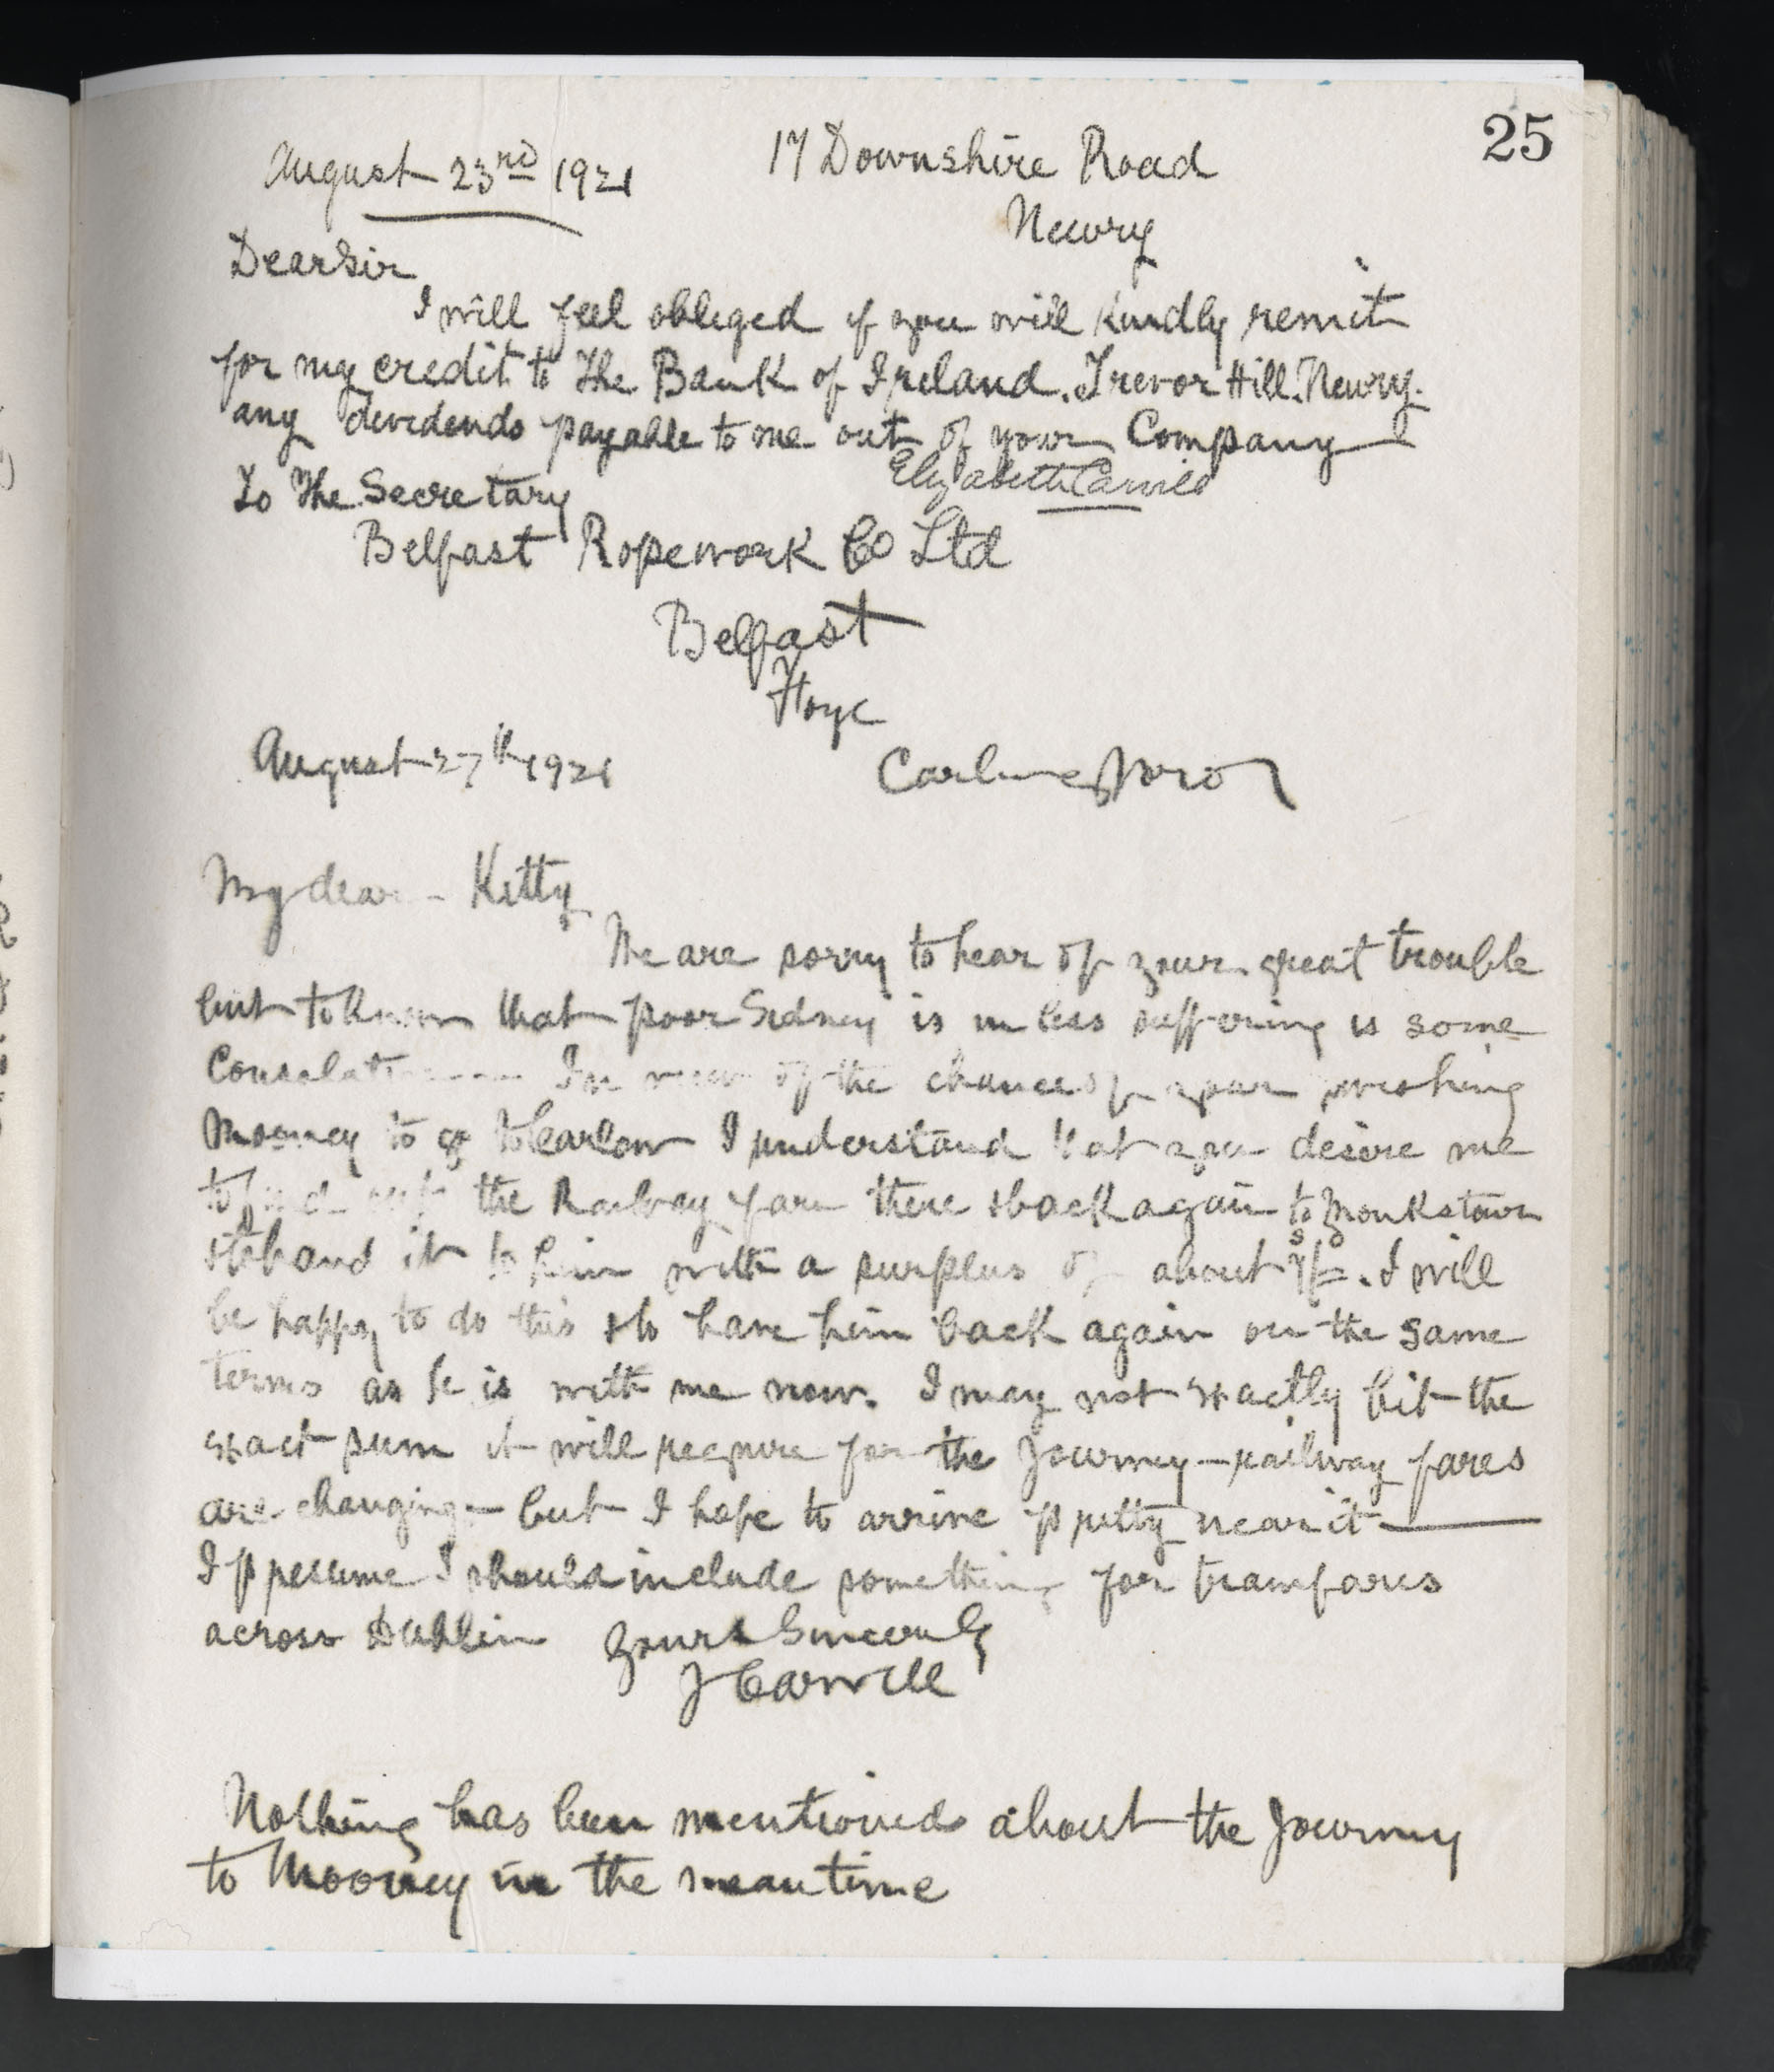 25
August 23rd 1921 17 Downshire Road
Newry
Dear Sir
I will feel obliged if you will kindly remit
for my credit to The Bank of Ireland. Trevor Hill. Newry.
any dividends payable to me out of your Company
Elizabeth Carvill
To The Secretary
Belfast Ropework Co Ltd
Belfast
August 27th 1921
My dear Kitty
We are sorry to hear of your great trouble
but to know that poor Sidney is in less suffering is some
Consolation In view of the chance of your wishing
Mooney to go to Carlow I understand that you desire me
to find out the Railway fare there & back again to Monkstown
& to hand it to him with a surplus of about I will
be happy to do this & to have him back again on the same
terms as he is with me now. I may not exactly hit the
exact sum it will require for the Journey - railway fares
are changing - but I hope to arrive pretty near it
I presume I should include something for tramfares
across Dublin Yours Sincerely
J Carvill
Nothing has been mentioned about the Journey
to Mooney in the meantime